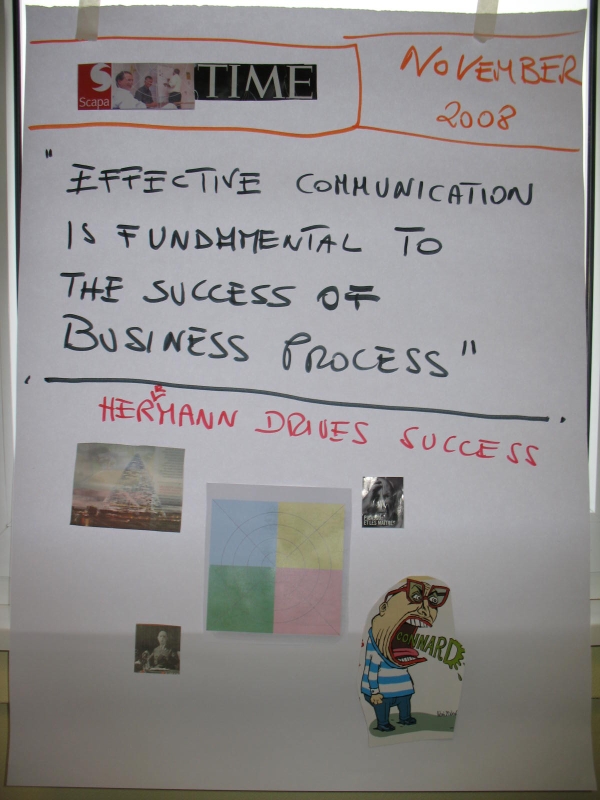 Scapa
TIME
NOVEMBER
2008
"EFFECTIVE COMMUNICATION
IS FUNDAMENTAL TO
THE SUCCESS OF
BUSINESS PROCESS"
HERMANN DRIVES SUCCESS
ET LES MAITRES
CONNARD